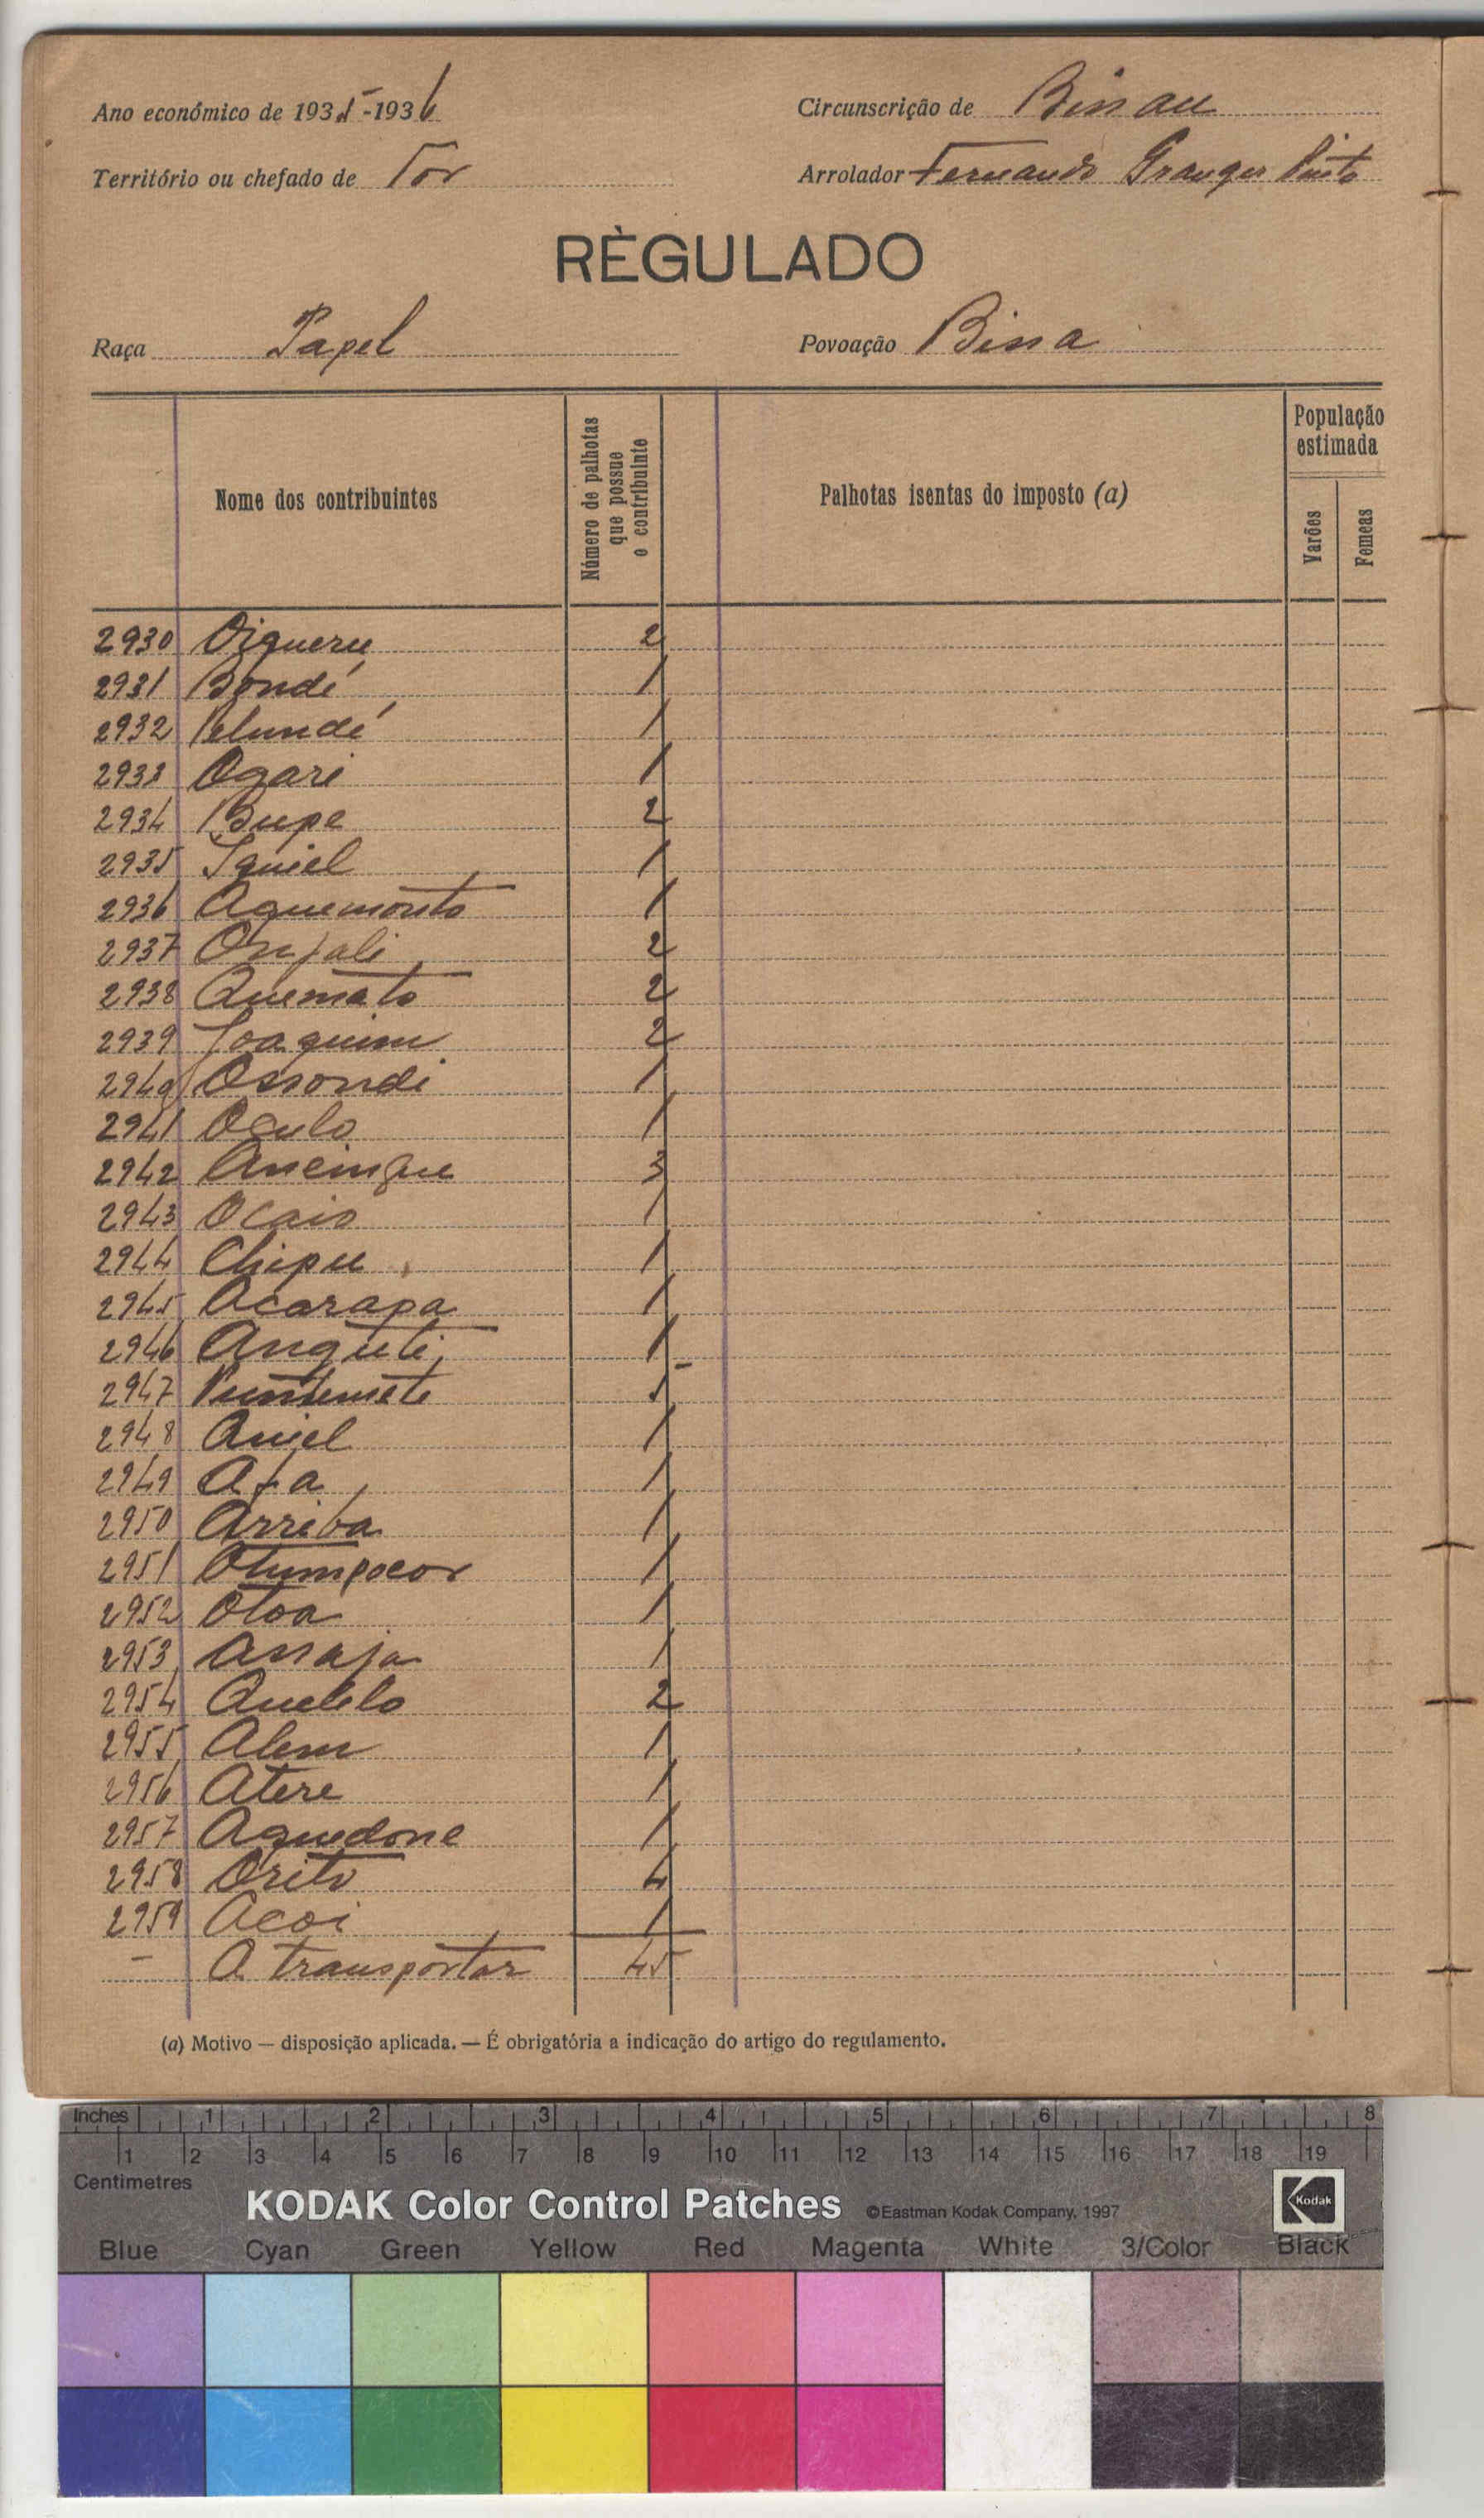 Ano económico de 1935-1936
Circunscrição de Bissau
Território ou chefado de Tor
Arrolador Fernando Granger Pinto
RÈGULADO
Raça Papel
Povoação Bissa
Nome dos contribuintes
Número de palhotas que possue o contribuinte
Palhotas isentas do imposto (a)
População estimada
Varões
Femeas
2930 Oigueru 2
2931 Bondé 1
2932 Pelundé 1
2933 Ogari 1
2934 Bupe 2
2935 Iquiel 1
2936 Aquemonto 1
2937 Onfali 2
2938 Quemato 2
2939 Joaquim 2
2940 Ossondi 1
2941 Oculo 1
2942 3
2943 Ocaio 1
2944 Chipu 1
2945 Acarapa 1
2946 Anguti 1
2947 5
2948 Aniel 1
2949 Afa 1
2950 Arriba 1
2951 Otumpocor 1
2952 Otoa 1
2953 Assaja 1
2954 Quelelo 2
2955 Alem 1
2956 Atere 1
2957 Aquedone 1
2958 Orito 4
2959 Acoi 1
- A transportar 45
(a) Motivo — disposição aplicada. — É obrigatória a indicação do artigo do regulamento.
Inches 1 2 3 4 5 6 7 8
1 2 3 4 5 6 7 8 9 10 11 12 13 14 15 16 17 18 19
Centimetres
KODAK Color Control Patches ©Eastman Kodak Company, 1997 Kodak
Blue Cyan Green Yellow Red Magenta White 3/Color Black